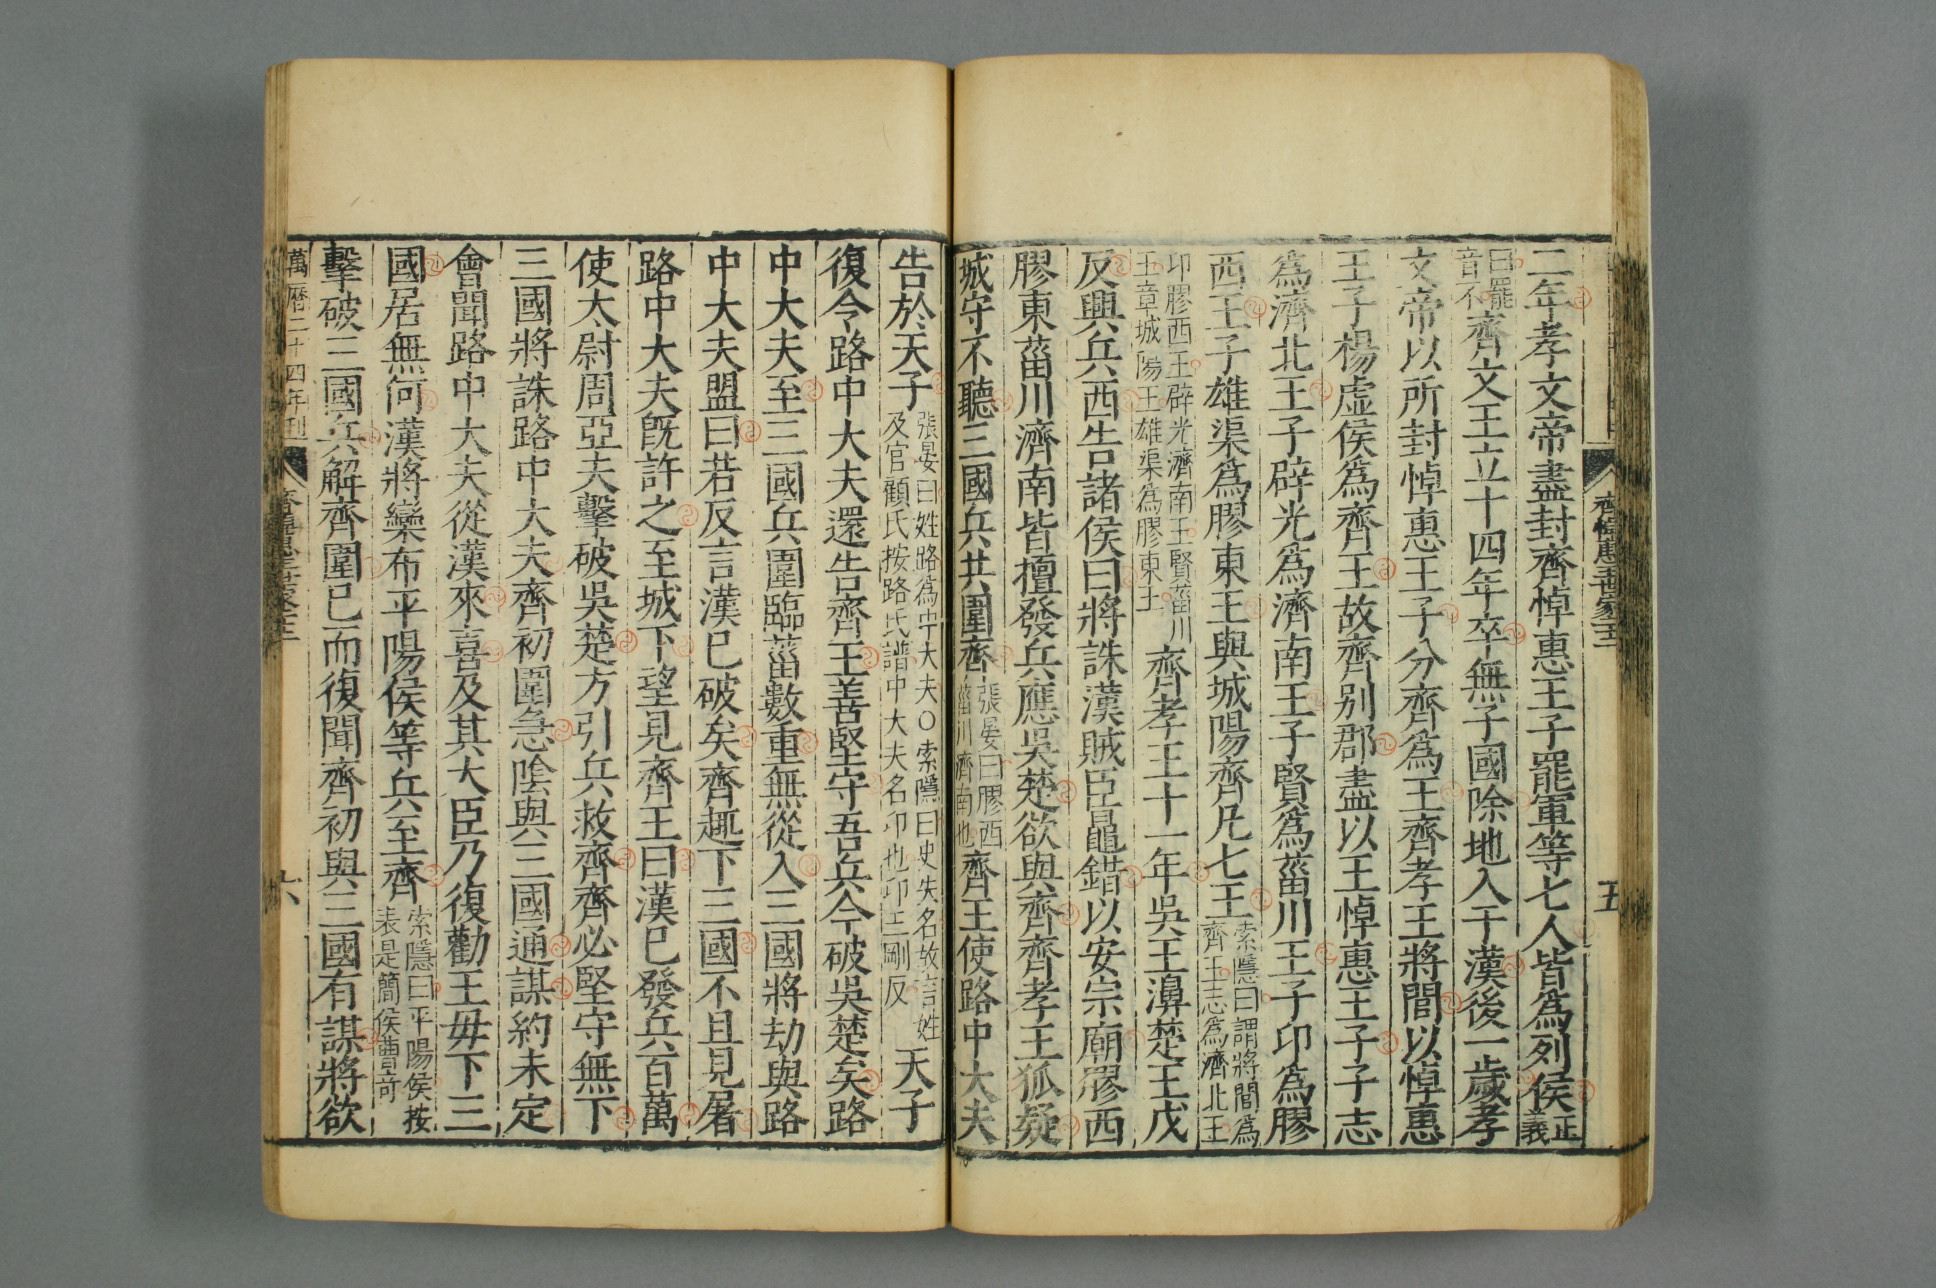 齊悼惠王世家 五
二年孝文帝盡封齊悼惠王子罷軍等七人皆爲列侯正義
曰罷音不齊文王立十四年卒無子國除地入于漢後一歲孝
文帝以所封悼惠王子分齊爲王齊孝王將閭以悼惠
王子楊虛侯爲齊王故齊别郡盡以王悼惠王子子志
爲濟北王子辟光爲濟南王子賢爲菑川王子卬爲膠
西王子雄渠爲膠東王與城陽齊凡七王索隱曰謂將閭爲齊王志爲濟北王
卬膠西王辟光濟南王賢菑川王章城陽王雄渠爲膠東王齊孝王十一年吳王濞楚王戊
反興兵西告諸侯曰將誅漢賊臣鼂錯以安宗廟膠西
膠東菑川濟南皆擅發兵應吳楚欲與齊齊孝王狐疑
城守不聽三國兵共圍齊張晏曰膠西菑川濟南也齊王使路中大夫
告於天子張晏曰姓路爲中大夫○索隱曰史失名故言姓及官顧氏按路氏譜中大夫名卬也卬五剛反天子
復令路中大夫還告齊王善堅守吾兵今破吳楚矣路
中大夫至三國兵圍臨菑數重無從入三國將劫與路
中大夫盟曰若反言漢已破矣齊趣下三國不且見屠
路中大夫旣許之至城下望見齊王曰漢已發兵百萬
使太尉周亞夫擊破吳楚方引兵救齊齊必堅守無下
三國將誅路中大夫齊初圍急陰與三國通謀約未定
會聞路中大夫從漢來喜及其大臣乃復勸王毋下三
國居無何漢將欒布平陽侯等兵至齊索隱曰平陽侯按表是簡侯曹奇
擊破三國兵解齊圍已而復聞齊初與三國有謀將欲
萬曆二十四年刊 六